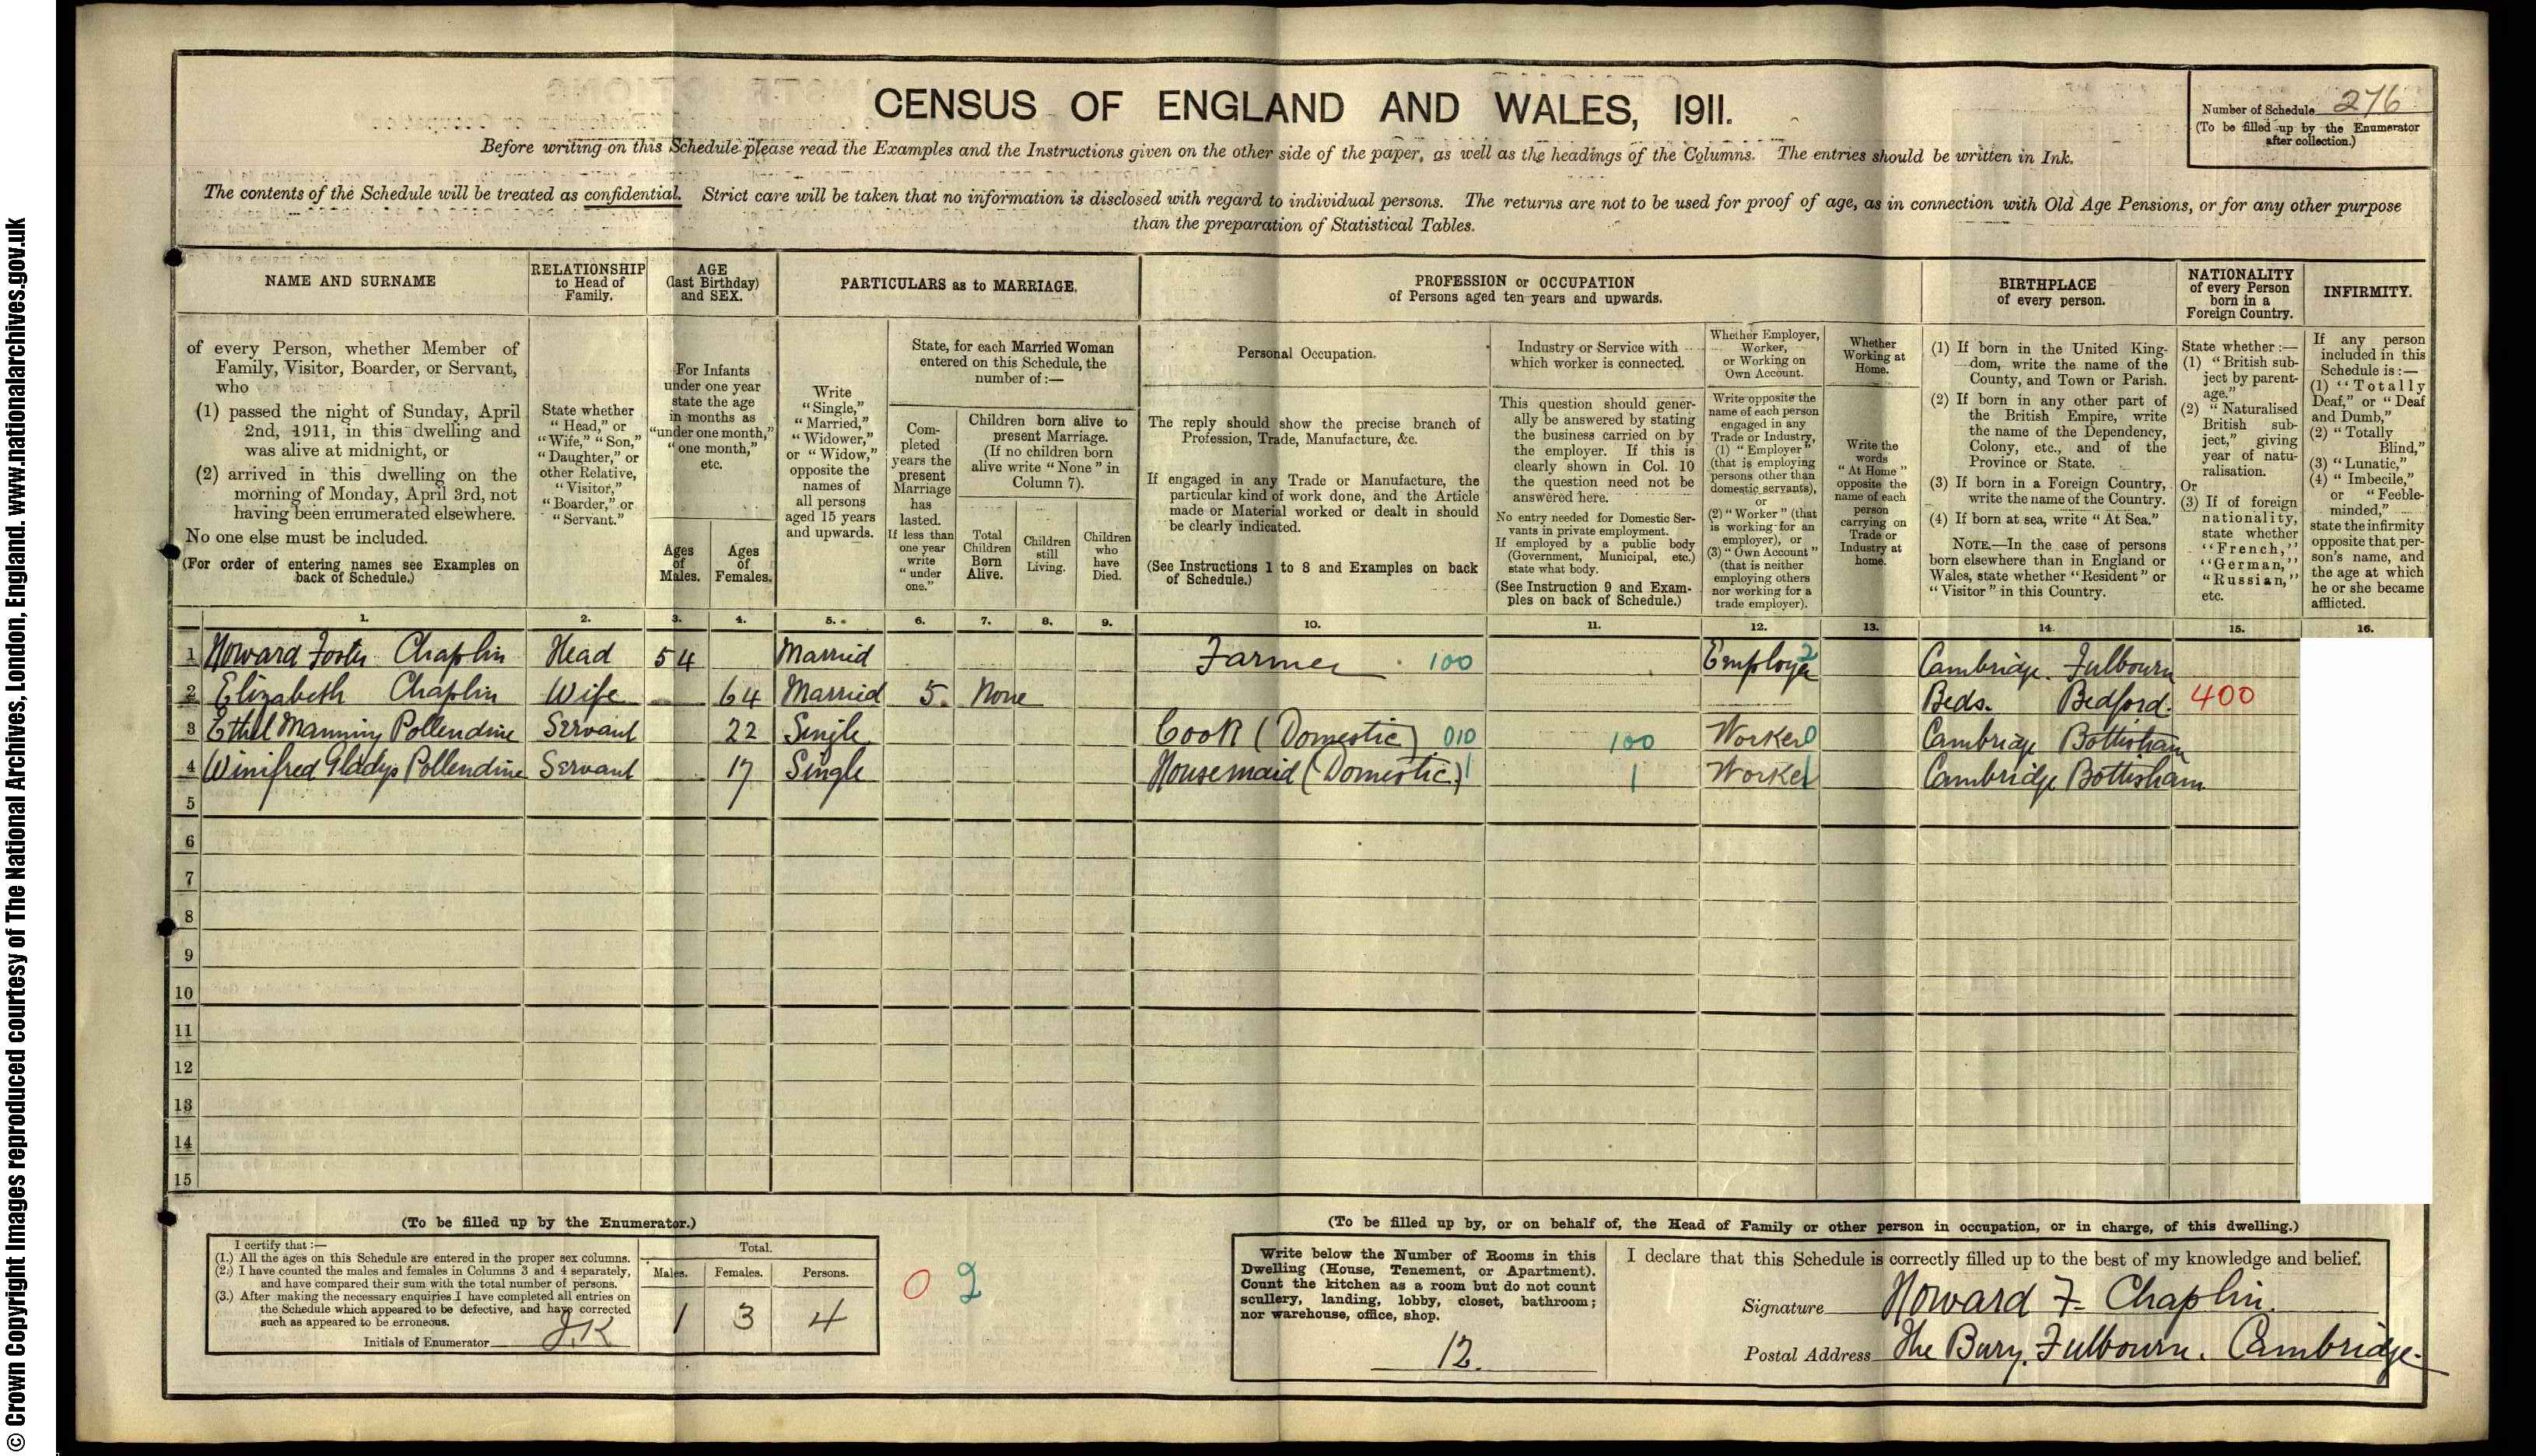 © Crown Copyright Images reproduced courtesy of The National Archives, London, England. www.nationalarchives.gov.uk
CENSUS OF ENGLAND AND WALES, 1911.
Number of Schedule 276
(To be filled up by the Enumerator
after collection.)
Before writing on this Schedule please read the Examples and the Instructions given on the other side of the paper, as well as the headings of the Columns. The entries should be written in Ink.
The contents of the Schedule will be treated as confidential. Strict care will be taken that no information is disclosed with regard to individual persons. The returns are not to be used for proof of age, as in connection with Old Age Pensions, or for any other purpose
than the preparation of Statistical Tables.
NAME AND SURNAME
of every Person, whether Member of
Family, Visitor, Boarder, or Servant,
who
(1) passed the night of Sunday, April
2nd, 1911, in this dwelling and
was alive at midnight, or
(2) arrived in this dwelling on the
morning of Monday, April 3rd, not
having been enumerated elsewhere.
No one else must be included.
(For order of entering names see Examples on
back of Schedule.)
RELATIONSHIP
to Head of
Family.
State whether
"Head," or
"Wife," "Son,"
"Daughter," or
other Relative,
"Visitor,"
"Boarder," or
"Servant."
AGE
(last Birthday)
and SEX.
For Infants
under one year
state the age
in months as
"under one month,"
"one month,"
etc.
Ages
of
Males.
Ages
of
Females.
PARTICULARS as to MARRIAGE.
Write
"Single,"
"Married,"
"Widower,"
or "Widow,"
opposite the
names of
all persons
aged 15 years
and upwards.
State, for each Married Woman
entered on this Schedule, the
number of:—
Com-
pleted
years the
present
Marriage
has
lasted.
If less than
one year
write
"under
one."
Children born alive to
present Marriage.
(If no children born
alive write "None" in
Column 7).
Total
Children
Born
Alive.
Children
still
Living.
Children
who
have
Died.
PROFESSION or OCCUPATION
of Persons aged ten years and upwards.
Personal Occupation.
The reply should show the precise branch of
Profession, Trade, Manufacture, &c.
If engaged in any Trade or Manufacture, the
particular kind of work done, and the Article
made or Material worked or dealt in should
be clearly indicated.
(See Instructions 1 to 8 and Examples on back
of Schedule.)
Industry or Service with
which worker is connected.
This question should gener-
ally be answered by stating
the business carried on by
the employer. If this is
clearly shown in Col. 10
the question need not be
answered here.
No entry needed for Domestic Ser-
vants in private employment.
If employed by a public body
(Government, Municipal, etc.)
state what body.
(See Instruction 9 and Exam-
ples on back of Schedule.)
Whether Employer,
Worker,
or Working on
Own Account.
Write opposite the
name of each person
engaged in any
Trade or Industry,
(1) "Employer"
(that is employing
persons other than
domestic servants),
or
(2) "Worker" (that
is working for an
employer), or
(3) "Own Account"
(that is neither
employing others
nor working for a
trade employer).
Whether
Working at
Home.
Write the
words
"At Home"
opposite the
name of each
person
carrying on
Trade or
Industry at
home.
BIRTHPLACE
of every person.
(1) If born in the United King-
dom, write the name of the
County, and Town or Parish.
(2) If born in any other part of
the British Empire, write
the name of the Dependency,
Colony, etc., and of the
Province or State.
(3) If born in a Foreign Country,
write the name of the Country.
(4) If born at sea, write "At Sea."
NOTE.—In the case of persons
born elsewhere than in England or
Wales, state whether "Resident" or
"Visitor" in this Country.
NATIONALITY
of every Person
born in a
Foreign Country.
State whether:—
(1) "British sub-
ject by parent-
age."
(2) "Naturalised
British sub-
ject," giving
year of natu-
ralisation.
Or
(3) If of foreign
nationality,
state whether
"French,"
"German,"
"Russian,"
etc.
INFIRMITY.
If any person
included in this
Schedule is:—
(1) "Totally
Deaf," or "Deaf
and Dumb,"
(2) "Totally
Blind,"
(3) "Lunatic,"
(4) "Imbecile,"
or "Feeble-
minded,"
state the infirmity
opposite that per-
son's name, and
the age at which
he or she became
afflicted.
1. 2. 3. 4. 5. 6. 7. 8. 9. 10. 11. 12. 13. 14. 15. 16.
1 Howard Foster Chaplin Head 54 Married Farmer 100 Employer 2 Cambridge. Fulbourn
2 Elizabeth Chaplin Wife 64 Married 5. None Beds. Bedford. 400
3 Ethel Manning Pollendine Servant 22 Single Cook (Domestic) 010 100 Worker 0 Cambridge Bottisham
4 Winifred Gladys Pollendine Servant 17 Single Housemaid (Domestic) 1 1 Worker 1 Cambridge Bottisham
5
6
7
8
9
10
11
12
13
14
15
(To be filled up by the Enumerator.)
I certify that:—
(1.) All the ages on this Schedule are entered in the proper sex columns.
(2.) I have counted the males and females in Columns 3 and 4 separately,
and have compared their sum with the total number of persons.
(3.) After making the necessary enquiries I have completed all entries on
the Schedule which appeared to be defective, and have corrected
such as appeared to be erroneous.
Initials of Enumerator J.K
Total.
Males. Females. Persons.
1 3 4
0 2
(To be filled up by, or on behalf of, the Head of Family or other person in occupation, or in charge, of this dwelling.)
Write below the Number of Rooms in this
Dwelling (House, Tenement, or Apartment).
Count the kitchen as a room but do not count
scullery, landing, lobby, closet, bathroom;
nor warehouse, office, shop.
12.
I declare that this Schedule is correctly filled up to the best of my knowledge and belief.
Signature Howard F. Chaplin.
Postal Address The Bury, Fulbourn. Cambridge.